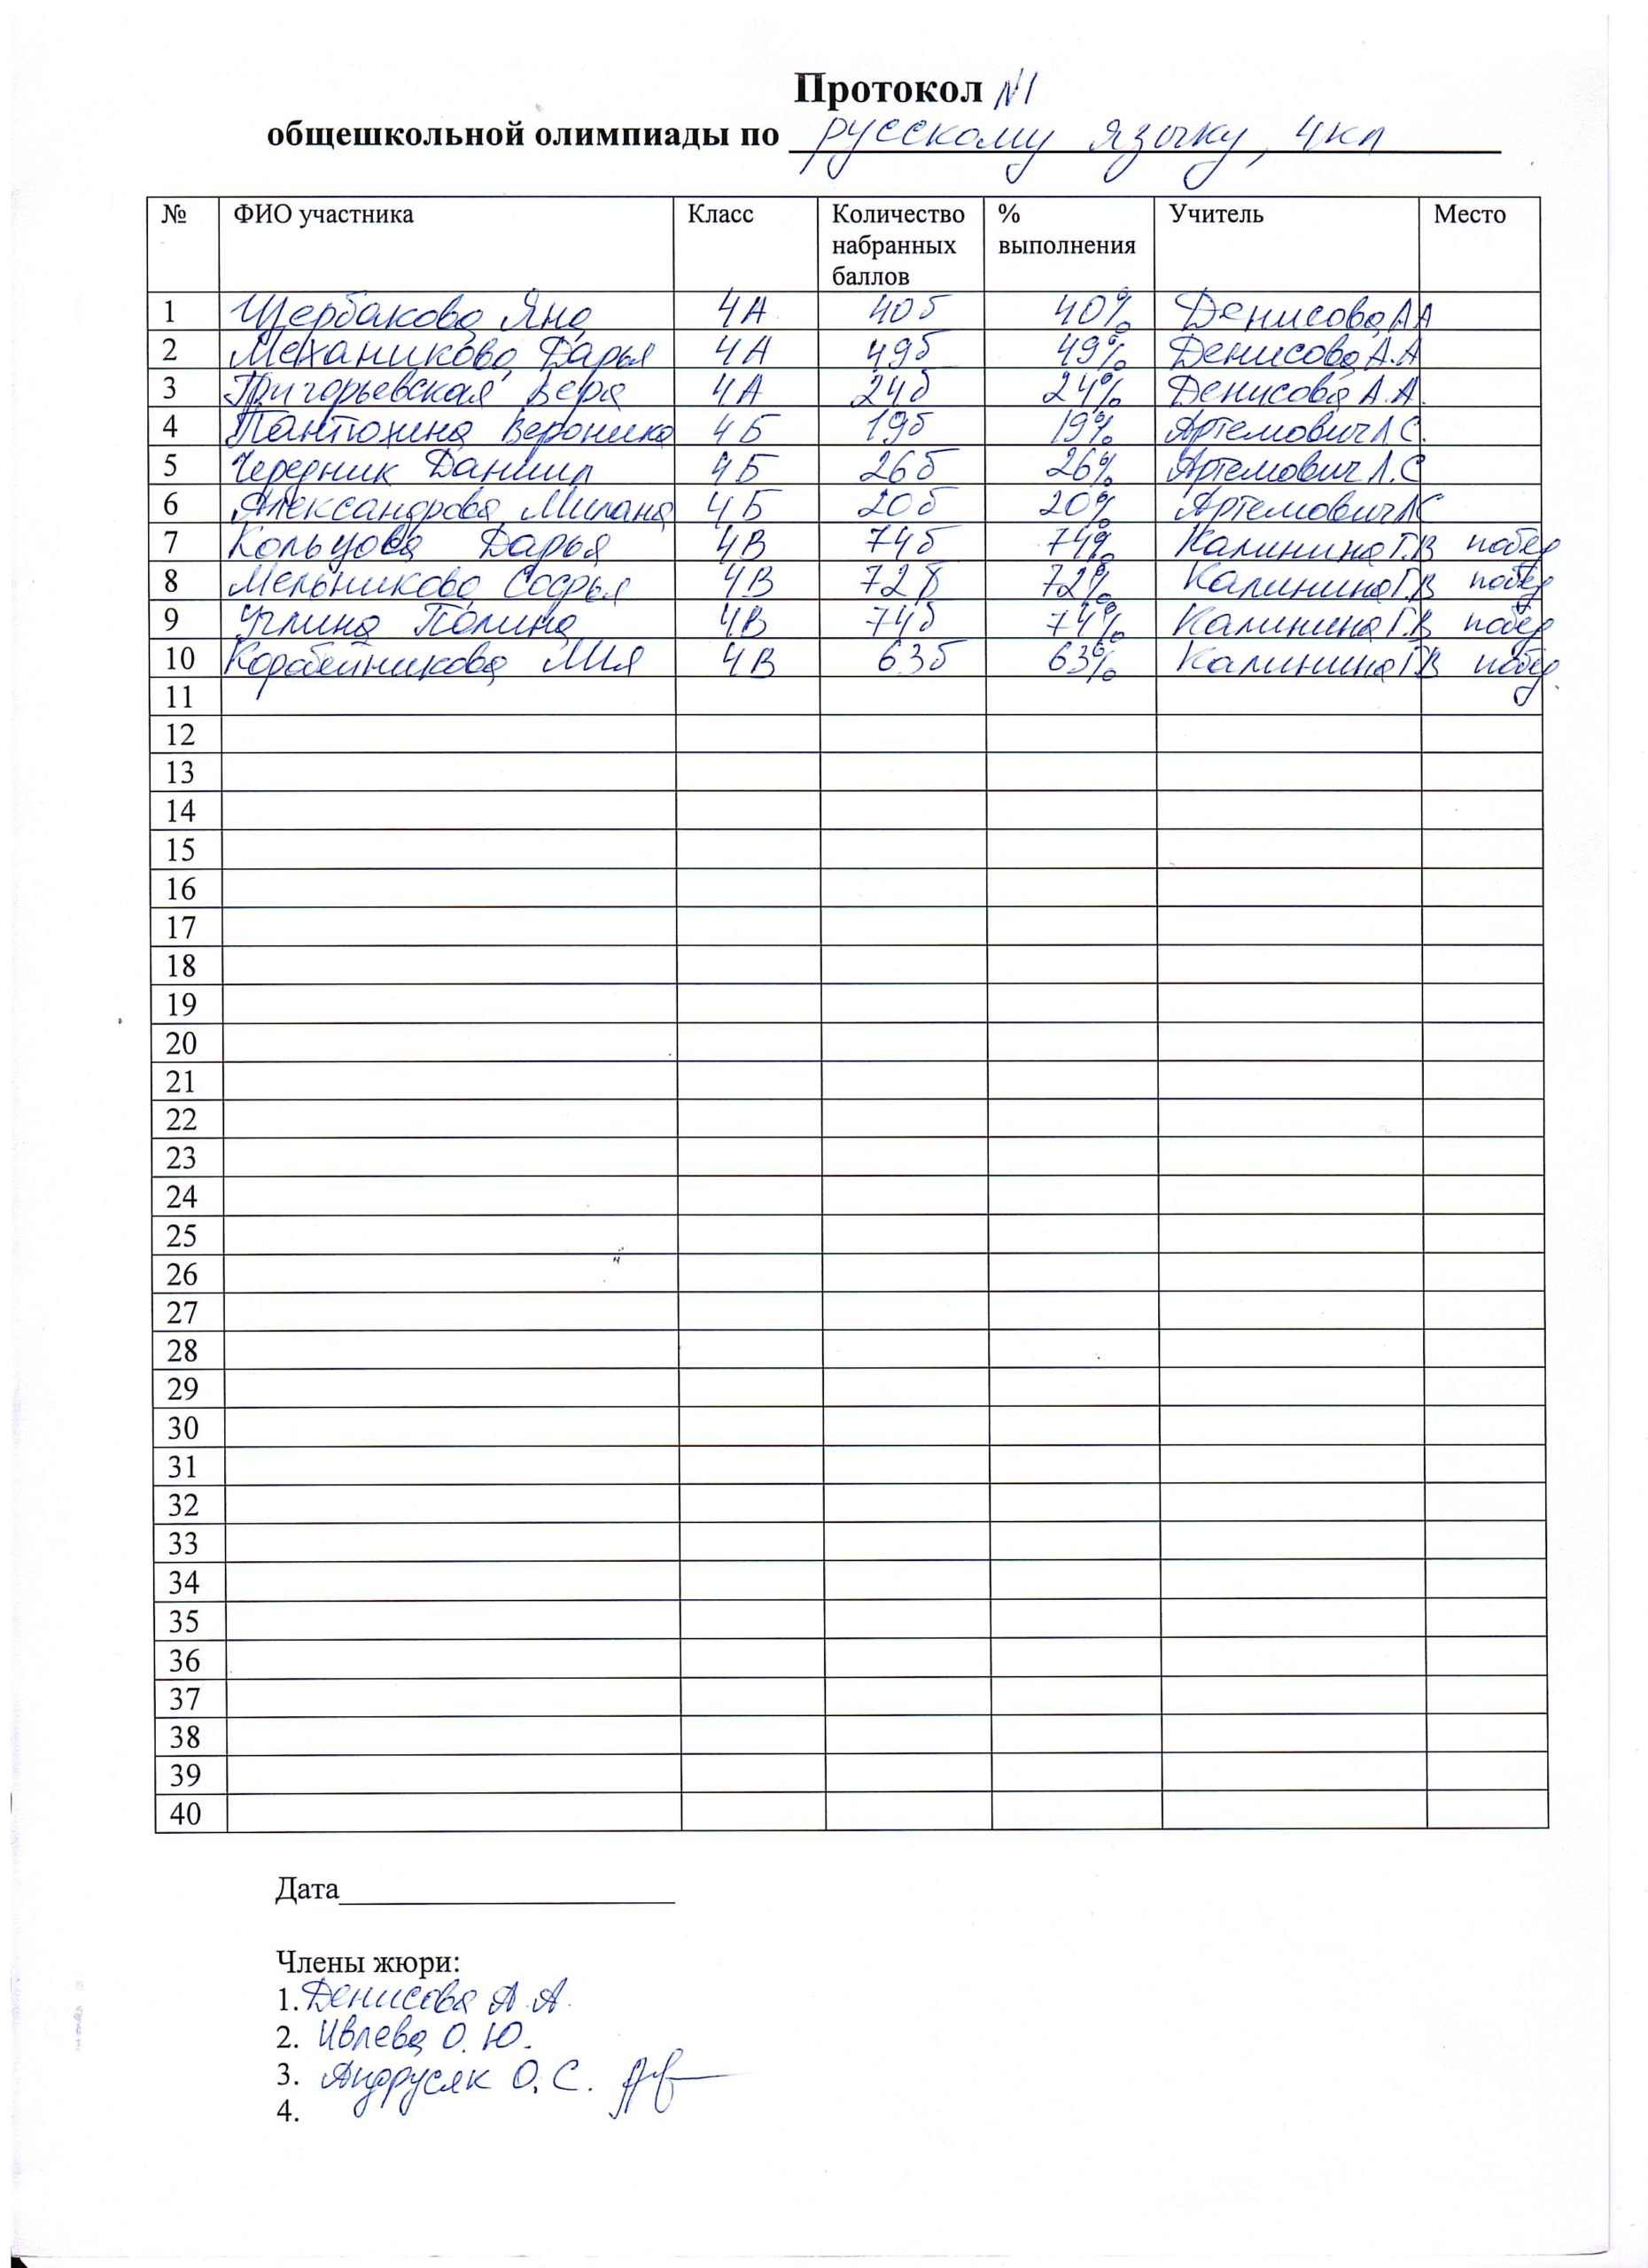 Протокол №1
общешкольной олимпиады по русскому языку, 4кл
№ ФИО участника Класс Количество набранных баллов % выполнения Учитель Место
1 Щербакова Яна 4А 40б 40% Денисова А А
2 Механикова Дарья 4А 49б 49% Денисова А.А
3 Григорьевская Вера 4А 24б 24% Денисова А.А.
4 Вероника 4Б 19б 19% Артемович Л.С.
5 Чередник Даниил 4Б 26б 26% Артемович Л.С
6 Александрова Милана 4Б 20б 20% Артемович ЛС
7 Кольцова Дарья 4В 74б 74% Калинина Г.В побед
8 Мельникова Софья 4В 72б 72% Калинина Г.В побед
9 Полина 4В 74б 74% Калинина Г.В побед
10 Коробейникова Мия 4В 63б 63% Калинина Г.В побед.
11
12
13
14
15
16
17
18
19
20
21
22
23
24
25
26
27
28
29
30
31
32
33
34
35
36
37
38
39
40
Дата
Члены жюри:
1. Денисова А.А.
2. Ивлева О.Ю.
3. Андрусяк О.С.
4.